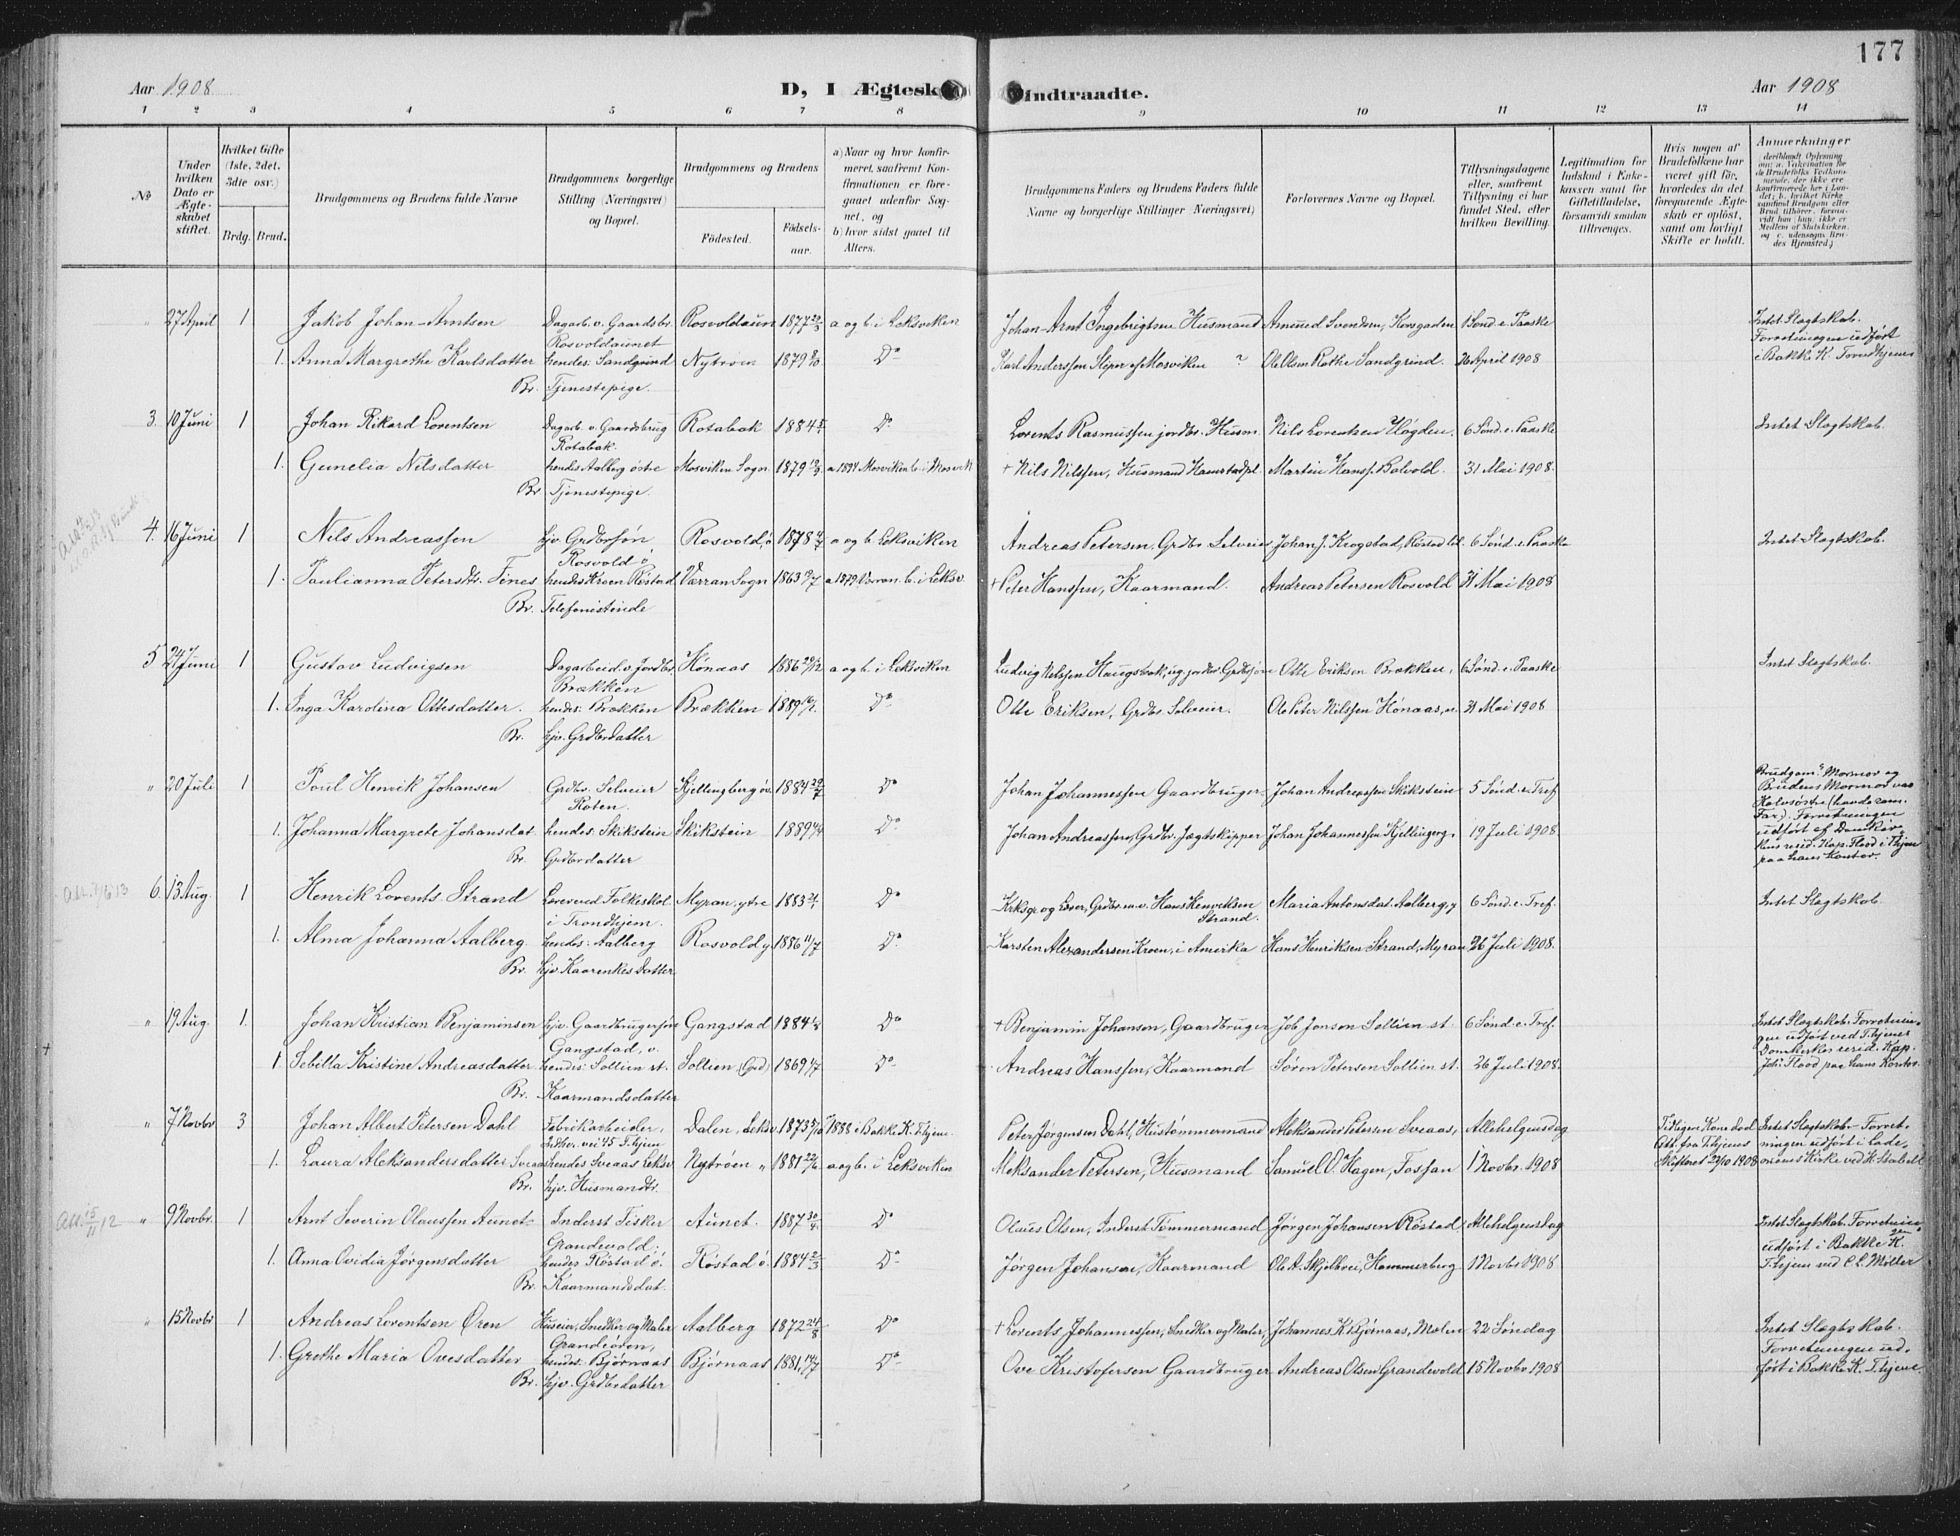 177
Aar 1908
D, I Ægtesk
indtraadte.
Aar 1908
1 2 3 4 5 6 7 8 9 10 11 12 13 14
No
Under hvilken Dato er Ægteskabet stiftet.
Hvilket Gifte (1ste, 2det, 3die osv.)
Brdg. Brud.
Brudgommens og Brudens fulde Navne
Brudgommens borgerlige Stilling (Næringsvei) og Bopæl.
Brudgommens og Brudens
Fødested.
Fødselsaar.
a) Naar og hvor konfirmeret, saafremt Konfirmationen er foregaaet udenfor Sognet, og
b) hvor sidst gaaet til Alters.
Brudgommens Faders og Brudens Faders fulde Navne og borgerlige Stillinger Næringsvei)
Forlovernes Navne og Bopæl.
Tillysningsdagene eller, saafremt Tillysning ei har fundet Sted, efter hvilken Bevilling.
Legitimation for Indskud i Enkekassen samt for Giftetilladelse, forsaavidt saadan tiltrænges.
Hvis nogen af Brudefolkene har været gift før, hvorledes da det foregaaende Ægteskab er opløst, samt om lovligt Skifte er holdt.
Anmærkninger
" 27 April 1 Jakob Johan Arntsen Dagarb. v. Gaardsbr. Rosvoldaunet Rosvoldaun 1877 a og b. i Leksviken Johan Arnt Ingebrigtsen Husmand Amund Svendsen, Korsgaden 1 Sønd. e. Paaske Intet Slegtskab. Forretningen udført i Bakke K. Trondhjem
1. Anna Margrethe Karlsdatter hendes: Sandgrind Nytrøen 1879 Do Karl Anderssen Sliper af Mosviken ? Ole Olsen Rothe Sandgrind. 26 April 1908
Br. Tjenestepige.
3. 10 Juni 1 Johan Rikard Lorentsen Dagarb. v. Gaardsbrug Rotabak. Rotabak 1884 Do Lorents Rasmussen jordbr. Husm. Nils Lorentsen Høgden. 6 Sønd. e. Paaske Intet Slegtskab.
1. Gunelia Nilsdatter hendes Aalberg østre Mosviken Sogn 1879 a 1894 Mosviken b. i Mosvik + Nils Nilssen, Husmand Hamstadpl. Martin Hanss. Bolvold. 31 Mai 1908.
Br Tjenestepige.
4. 16 Juni 1 Nils Andreassen hjv. Grdbrsøn Rosvold i Rosvold, ø 1878 a og b. Leksviken Andreas Petersen, Grdbr. Selveier Johan J. Krogstad, Røstad lil. 6 Sønd. e. Paaske Intet Slegtskab.
1. Paulianna Petersdt. Fines hendes Kroen Røstad Værran Sogn 1863 a 1879 Værran. b. i Leksv. + Peter Hanssen, Kaarmand. Andreas Petersen Rosvold 31 Mai 1908
Br. Telefonistinde
5 24 Juni 1 Gustav Ludvigsen Dagarbeid. v. Jordbr. Brækken Hønaas 1886 29/12 a og b. i Leksviken Ludvig Nilssen Haugsbak, ug. jordbr. Grdbrsøn Otte Eriksen Brækken, 6 Sønd. e. Paaske Intet Slegtskab.
1. Inga Karolina Ottesdatter. hendes: Brækken Brækken 1889 Do Otte Eriksen, Grdbr. Selveier. Ole Peter Nilssen Hønaas, n. 31 Mai 1908
Br. hjv. Grdbrdatter
" 20 Juli 1 Poul Henrik Johansen Grdbr. Selveier Roten. Kjellingberg øv. 1884 29/7 Do Johan Johannessen Gaardbruger Johan Andreassen Skikstein 5 Sønd. e. Tref. Brudgom.s Mormor og Brudens Mormor var Halvsøstre (havde sam. Far). Forretningen udført af Domkirkens resid. Kap. Flood i Thjem paa hans Kontor.
1. Johanna Margrete Johansdat hendes: Skikstein Skikstein 1889 Do Johan Andreassen, Grdbr. Jægtskipper Johan Johannessen Kjellingerg. 19 Juli 1908.
Br. Grdbrdatter
6. 13 Aug. 1 Henrik Lorents Strand Lærer ved Folkeskol. i Trondhjem. Myran ytre 1883 Do Krksgr og Lærer, Grdbr. m. v. Hans Henriksen Strand. Maria Antonsdat. Aalberg, y 6 Sønd. e. Tref. Intet Slegtskab.
1. Alma Johanna Aalberg. hendes: Aalberg Rosvold y 1886 11/7 Do Karsten Alexandersen Kroen, i Amerika Hans Henriksen Strand, Myran 26 Juli 1908.
Br. hjv. Kaarenkes Datter
" 19 Aug. 1. Johan Kristian Benjaminsen hjv. Gaardbrugersøn Gangstad, v. Gangstad 1884 Do + Benjamin Johansen, Gaardbruger Job Jonson Sollien st. 6 Sønd. e. Tref. Intet Slegtskab. Forretningen udført ved Thjems Domkirkes resid. Kap. Joh. Flood paa hans Kontor.
1. Sebilla Kristine Andreasdatter hendes: Sollien st. Sollien (Grd) 1869 Do Andreas Hanssen, Kaarmand Søren Petersen Sollien st. 26 Juli 1908.
Br. Kaarmandsdatter
" 7 Novbr 3 Johan Albert Petersen Dahl Fabrikarbeider, Indher. vei 45 T.hjem Dalen, Leksv. 1873 1888 i Bakke K. T.hjem. Peter Jørgensen Dahl, Hustømmermand Aleksander Petersen Sveaas, Allehelgensdag Tidligere Kone død Att. fra T.hjems Skifteret 22/10 1908 Intet Slegtskab - Forretningen udført i Lademoens Kirke ved K. Stabell
1. Laura Aleksandersdatter Sveaas hendes Sveaas Leksv. Nytrøen " 1881 a og b. i Leksviken Aleksander Petersen, Husmand Samuel O. Hagen, Fossan 1 Novbr. 1908
Br. hjv. Husmandtr.
" 9 Novbr. 1 Arnt Severin Olaussen Aunet Inderst Fisker Grandevold; Aunet. 1887 30/4 Do Olaus Olsen, Inderst Tømmermand Jørgen Johansen Røstad, Allehelgensdag Intet Slegtskab. Forretningen udført i Bakke K. T.hjem ved C. L. Møller
1. Anna Ovidia Jørgensdatter hendes Røstad ø. Røstad ø. 1884 2/3 Do Jørgen Johansen, Kaarmand Ole A. Skjelbrei, Hammerberg 1 Novbr 1908
Br. Kaarmandsdat.
" 15 Novbr 1 Andreas Lorentsen Øren Huseier, Snedker og Maler Grandeøren, Aalberg 1872 24/8 Do + Lorents Johannessen, Snedker og Maler, Johannes K. Bjørnaas, Molen 22 Søndag Intet Slegtskab. Forretningen udført i Bakke K. T.hjem.
1. Grethe Maria Ovesdatter hendes: Bjørnaas Bjørnaas 1881 14/7 Do Ove Kristofersen Gaardbruger Andreas Olsen Grandevold 15 Novbr 1908
Br. hjv. Grdbrdatter
Att. 15/11 12